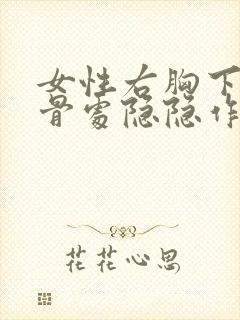 女性右胸下
骨处隐隐作
花花心思